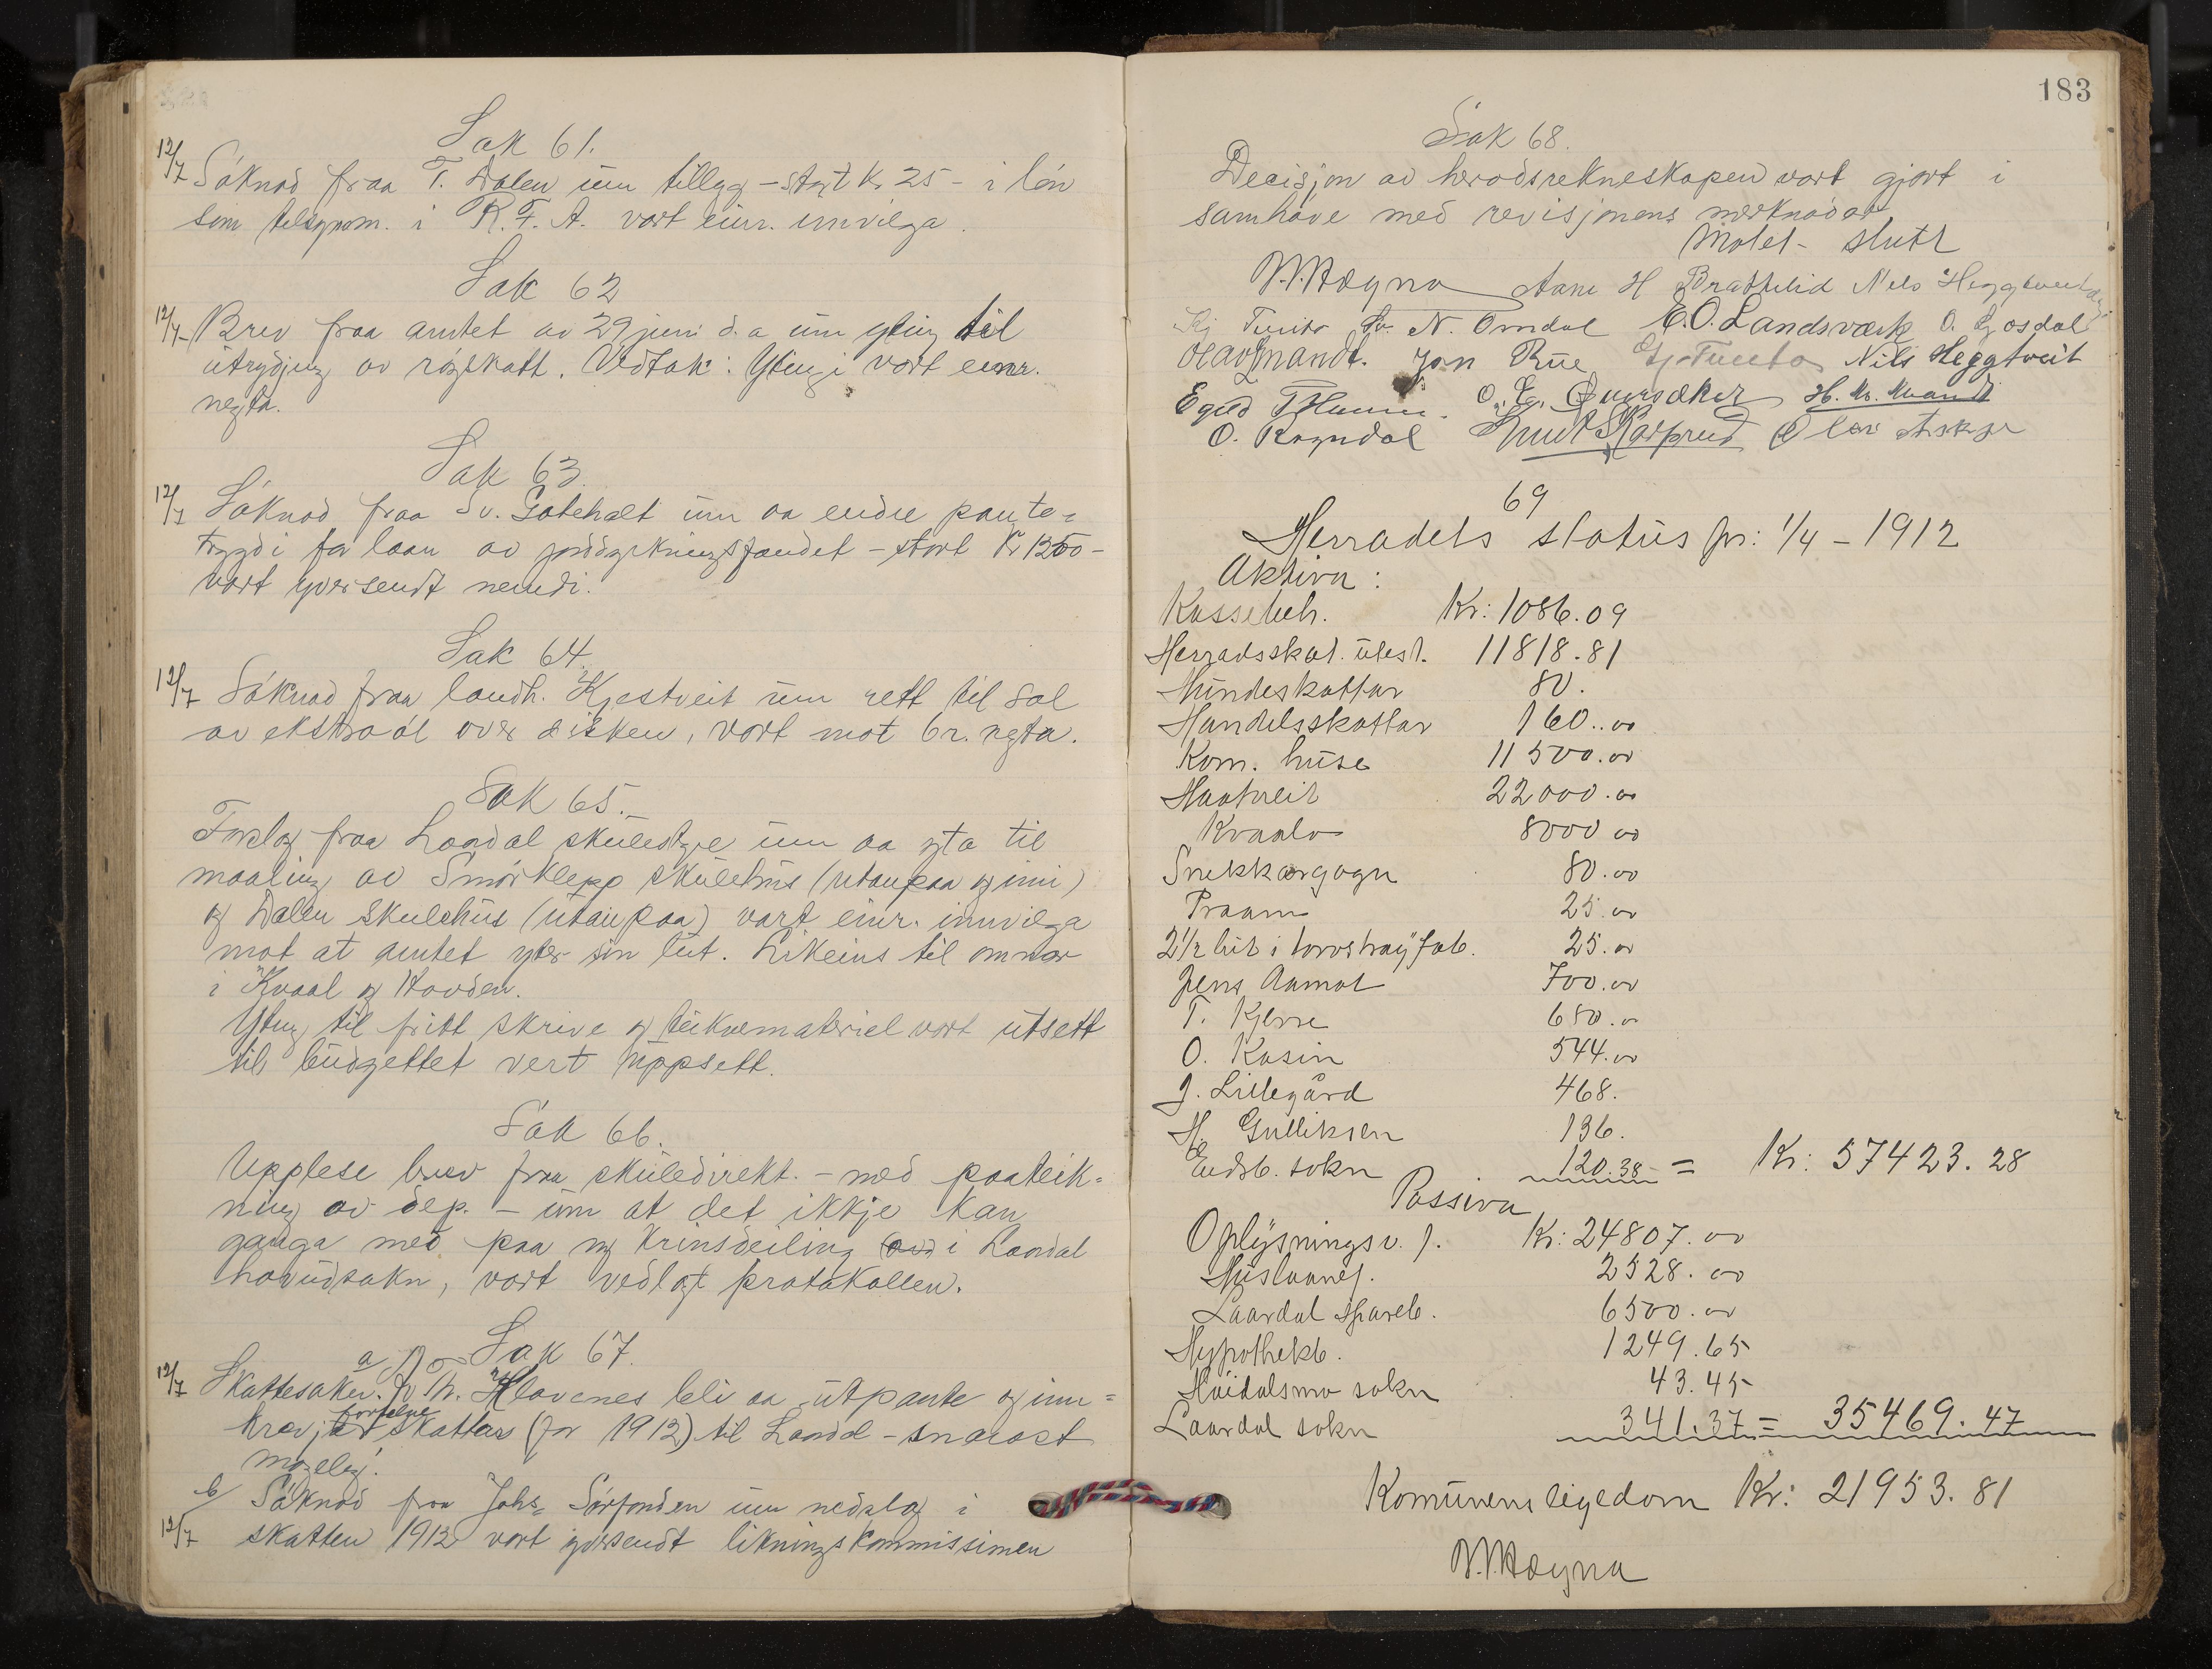 Sak 61.
12/7 Söknad fraa T. Dalen um tillegg - stort kr 25 - i lön
som tilsynsm. i K.F.A. vart einr. innvilga.
Sak 62
12/7 Brev fraa amtet av 29 juni d.a um yting til
utrydjing av röyskatt. Vedtak: Ytingi vart einr.
negta.
Sak 63.
12/7 Söknad fraa Sv. um aa endre pante-
trygdi for laan av jorddyrkningsfondet - stort Kr 1200 -
vart yversendt nemdi.
Sak 64.
12/7 Söknad fraa landh. Kjestveit um rett til sal
av ekstraöl over disken, vart mot 6 r. negta.
Sak 65.
Forslag fraa Laardal skulestyre um aa yta til
maaling av Smörklepp skulehus (utanpaa og inni)
og Dalen skulehus (utanpaa) vart einr. innvilga
mot at amtet yter sin lut. Likeins til omnar
i Kvaal og Hovden.
Yting til fritt skrive og teiknemateriel vart utsett
til budgettet vert uppsett.
Sak 66.
Upplese brev fraa skuledirekt. - med paateik-
ning av dep. - um at det ikkje kan
ganga med paa ny krinsdeiling i Laardal
hovudsokn, vart vedlagt protakollen.
Sak 67.
a
12/7 Skattesaker. Th. Klavenes beli aa utpante og inn-
krevja forfalne skattar (for 1912) til Laardal - snarast
mogeleg.
b/ Söknad fraa Johs. Sörfonden um nedslag i
12/7 skatten 1912 vart yversendt likningskommissionen
183
Sak 68.
Decisjon av heradsrekneskapen vart gjort i
samhöve med revisjonens merknadar.
Mötet slutt
V. Högna Aane H Brattelid Nils Heggtveit
Kj Tveito N. Omdal E.O. Landsværk O. Gosdal
Olav Mandt. Jon Rue Tveito Nils Heggtveit
Egild O. G. H. M. Mandt
O. Rogndal Knut Skarprud Olav
69
Herradets status pr: 1/4 - 1912
Aktiva:
Kassebeh. Kr: 1086.09
Herradsskat. utest. 11818.81
Hundeskattar 80.
Handelsskattar 160..00
Kom. huse 11500.00
Haatveit 22000.00
Kvaale 8000 00
Snekkargogn 80.00
Praam 25.00
2 1/2 lut i torvströyfab. 25.00
Jens Aamot 700.00
T. Kjerre 680.00
O. Kasin 544.00
J. Lillegård 468.
H. Gulliksen 136.
Eidsb. sokn 120.38 = Kr: 57423.28
Passiva
Oplysningsv. f. Kr: 24807.00
Huslaanef. 2528.00
Laardal spareb. 6500.00
Hypothekb. 1249.65
Höidalsmo sokn 43.45
Laardal sokn 341.37 = 35469.47
Komunens eigedom Kr: 21953.81
V. Högna